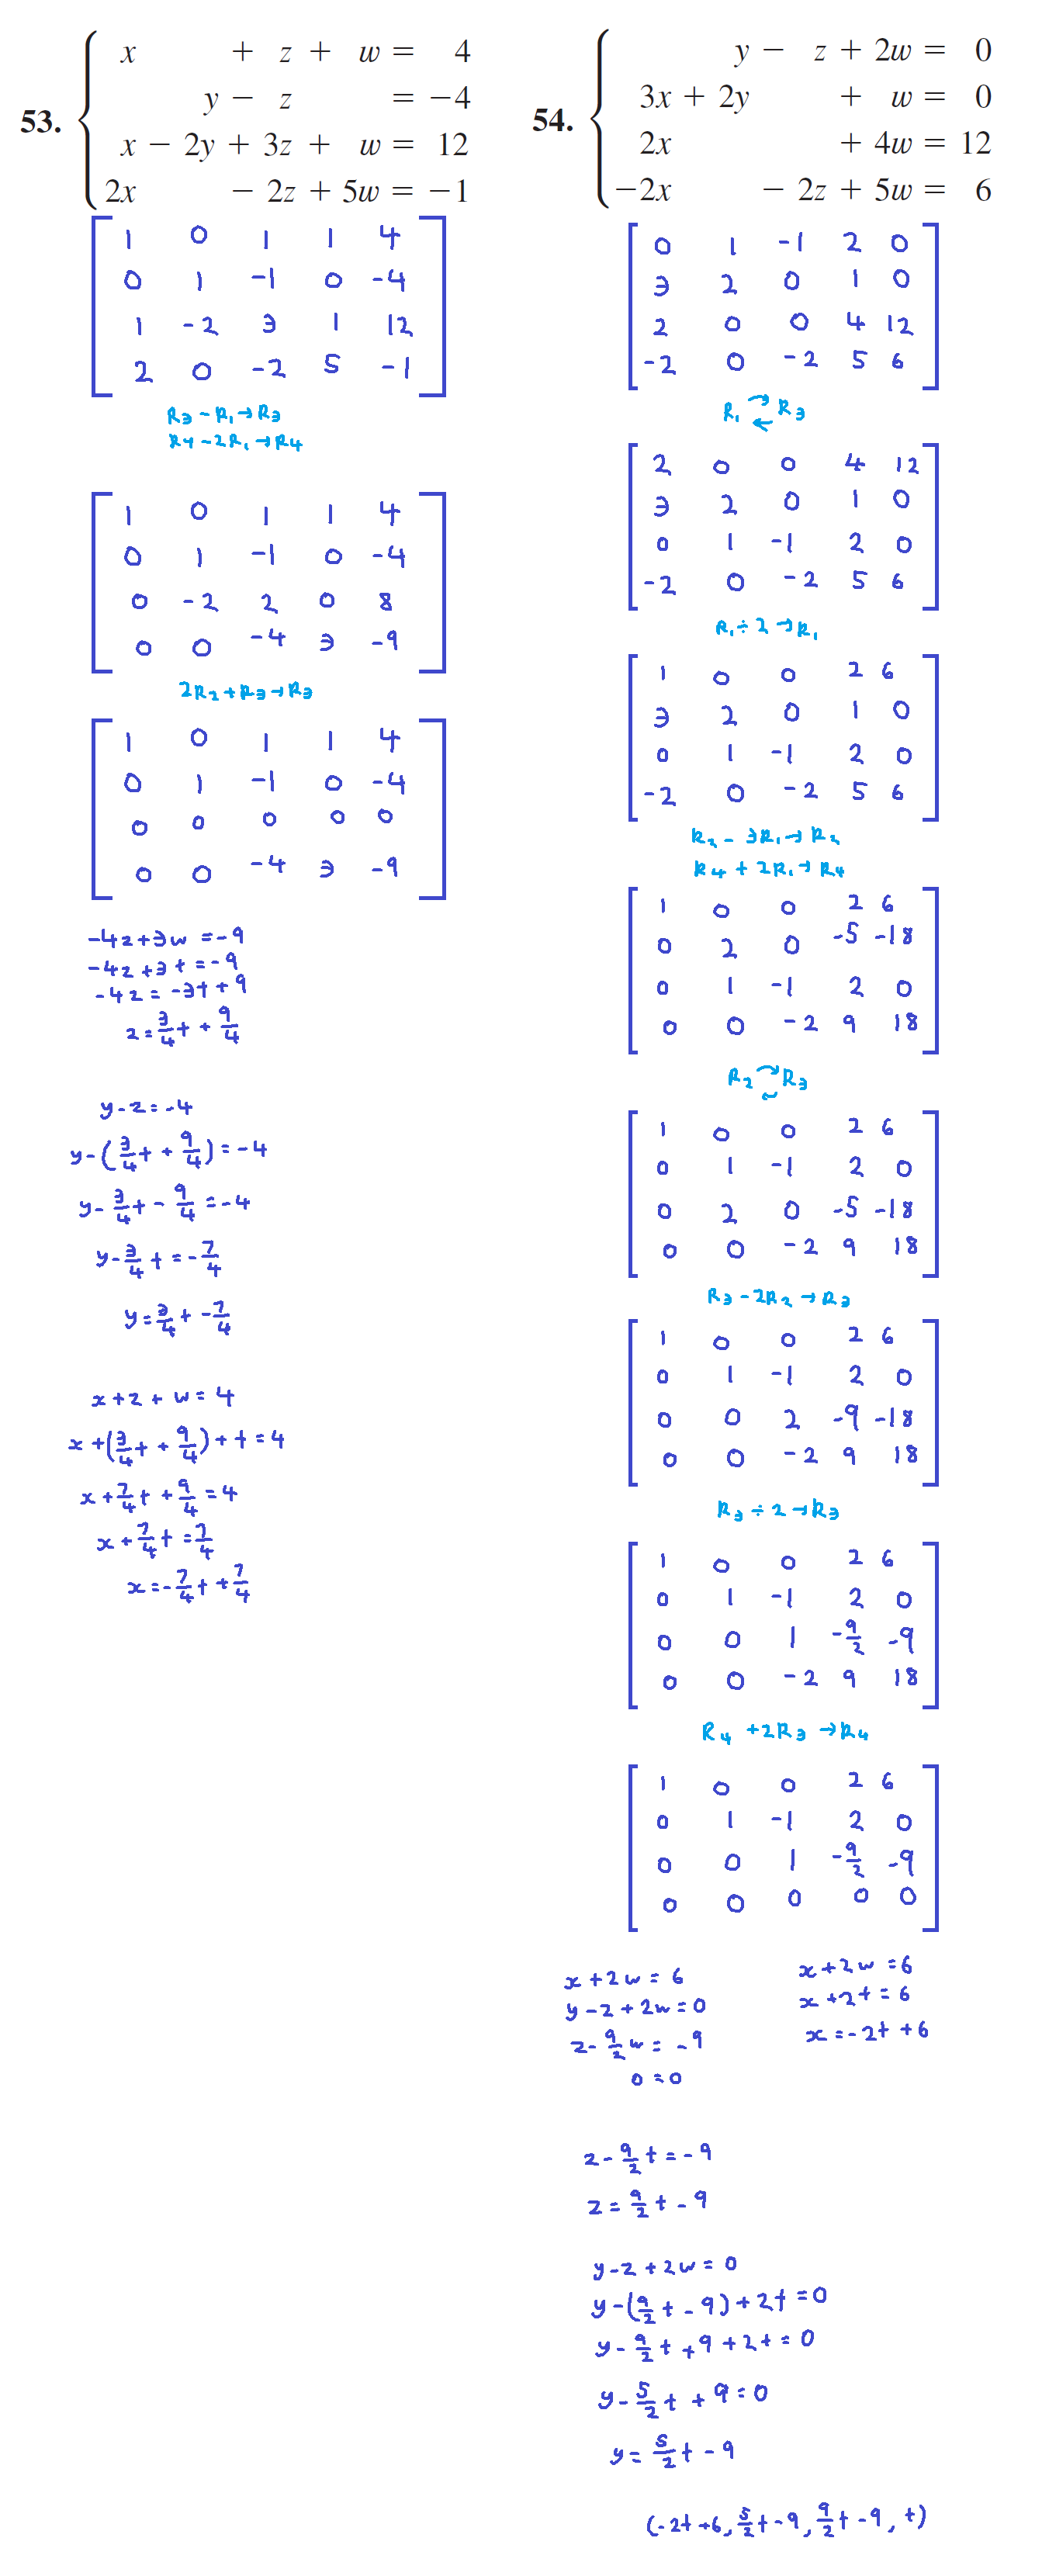 53.
x + z + w = 4
y − z = −4
x − 2y + 3z + w = 12
2x − 2z + 5w = −1
1 0 1 1 4
0 1 -1 0 -4
1 -2 3 1 12
2 0 -2 5 -1
R3 - R1 → R3
R4 - 2R1 → R4
1 0 1 1 4
0 1 -1 0 -4
0 -2 2 0 8
0 0 -4 3 -9
2R2 + R3 → R3
1 0 1 1 4
0 1 -1 0 -4
0 0 0 0 0
0 0 -4 3 -9
-4z+3w = -9
-4z+3t = -9
-4z = -3t + 9
z = 3/4 t + 9/4
y - z = -4
y - (3/4 t + 9/4) = -4
y - 3/4 t - 9/4 = -4
y - 3/4 t = - 7/4
y = 3/4 t - 7/4
x + z + w = 4
x + (3/4 t + 9/4) + t = 4
x + 7/4 t + 9/4 = 4
x + 7/4 t = 7/4
x = - 7/4 t + 7/4
54.
y − z + 2w = 0
3x + 2y + w = 0
2x + 4w = 12
−2x − 2z + 5w = 6
0 1 -1 2 0
3 2 0 1 0
2 0 0 4 12
-2 0 -2 5 6
R1 ⇄ R3
2 0 0 4 12
3 2 0 1 0
0 1 -1 2 0
-2 0 -2 5 6
R1 ÷ 2 → R1
1 0 0 2 6
3 2 0 1 0
0 1 -1 2 0
-2 0 -2 5 6
R2 - 3R1 → R2
R4 + 2R1 → R4
1 0 0 2 6
0 2 0 -5 -18
0 1 -1 2 0
0 0 -2 9 18
R2 ⇄ R3
1 0 0 2 6
0 1 -1 2 0
0 2 0 -5 -18
0 0 -2 9 18
R3 - 2R2 → R3
1 0 0 2 6
0 1 -1 2 0
0 0 2 -9 -18
0 0 -2 9 18
R3 ÷ 2 → R3
1 0 0 2 6
0 1 -1 2 0
0 0 1 -9/2 -9
0 0 -2 9 18
R4 + 2R3 → R4
1 0 0 2 6
0 1 -1 2 0
0 0 1 -9/2 -9
0 0 0 0 0
x + 2w = 6
y - z + 2w = 0
z - 9/2 w = -9
0 = 0
x + 2w = 6
x + 2t = 6
x = -2t + 6
z - 9/2 t = -9
z = 9/2 t - 9
y - z + 2w = 0
y - (9/2 t - 9) + 2t = 0
y - 9/2 t + 9 + 2t = 0
y - 5/2 t + 9 = 0
y = 5/2 t - 9
(-2t +6, 5/2 t - 9, 9/2 t - 9, t)